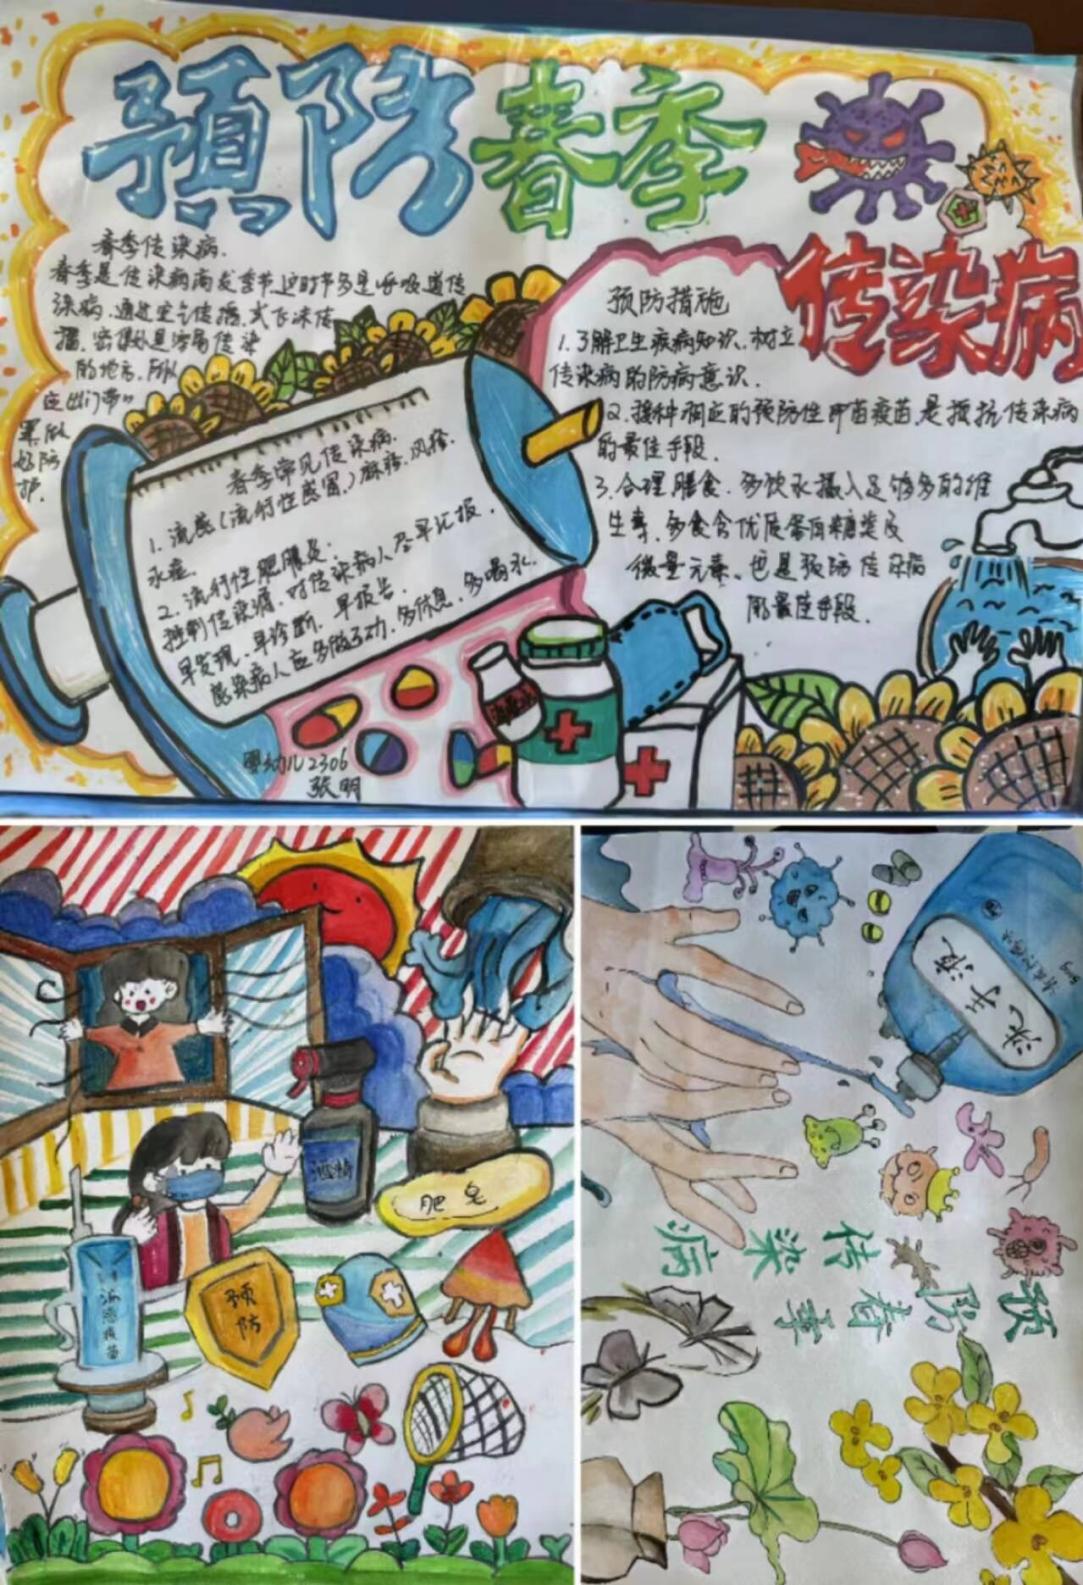 预防春季
传染病
春季传染病.
春季是传染病高发季节这时节多是呼吸道传
染病.通过空气传播.或飞沫传
播.密集处是容易传染
的地方.所以
应出门带口
罩.做
好防
护.
春季常见传染病.
1.流感(流行性感冒)麻疹.风疹.
水痘.
2.流行性腮腺炎.
控制传染源.对传染病人尽早汇报.
早发现.早诊断.早报告.
感染病人应多做运动.多休息.多喝水.
预防措施
1.了解卫生疾病知识.树立
传染病的防病意识.
2.接种相应的预防性疫苗是抵抗传染病
的最佳手段.
3.合理膳食.多饮水摄入足够多的维
生素.多食含优质蛋白糖类及
微量元素.也是预防传染病
的最佳手段.
婴幼儿2306
张明
酒精
肥皂
流感疫苗
预
防
洗手液
预防春季
传染病